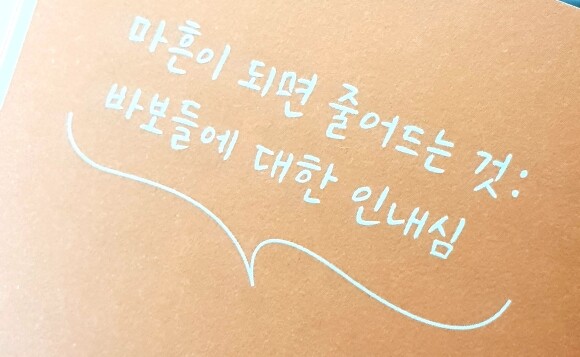 마흔이 되면 줄어드는 것:
바보들에 대한 인내심